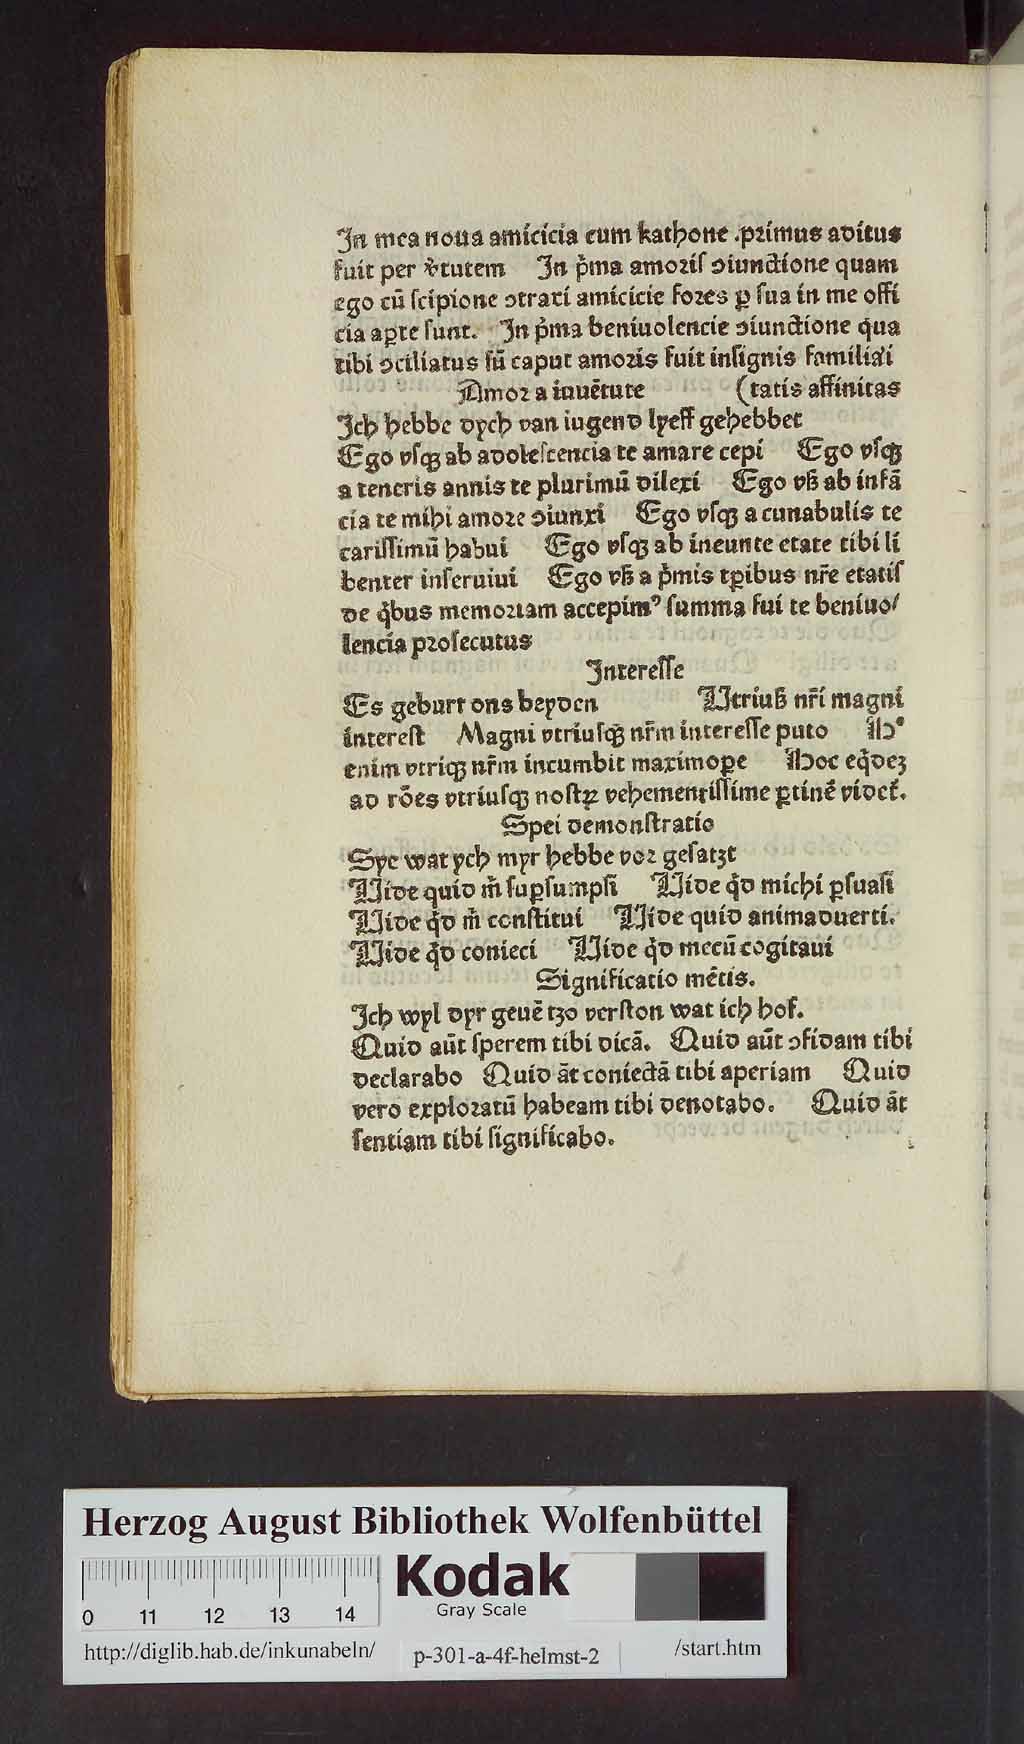 In mea noua amicicia cum kathone .primus aditus
fuit per v̓tutem In p̓ma amoris ↄiunctione quam
ego cū scipione ↄtraxi amicicie fores ꝑ sua in me offi
cia aꝑte sunt. In p̓ma beniuolencie ↄiunctione q̓ua
tibi ↄciliatus sū caput amoris fuit insignis familiai
Amor a iuuētute (tatis affinitas
Ich hebbe dych van iugend lyeff gehebbet
Ego vsqꝫ ab adolescencia te amare cepi Ego vsqꝫ
a teneris annis te plurimū dilexi Ego vß ab infā
cia te mihi amore ↄiunxi Ego vsqꝫ a cunabulis te
carissimū habui Ego vsqꝫ ab ineunte etate tibi li
benter inseruiui Ego vß a p̓mis tꝑibus nr̄e etatis
de q̓bus memoriam accepimꝰ summa fui te beniuo/
lencia prosecutus
Interesse
Es geburt ons beyden Utriuß nr̄i magni
interest Magni vtriusqꝫ nr̄m interesse puto Hͦ
enim vtriqꝫ nr̄m incumbit maximoꝑe Hoc eq̓deꝫ
ad rōes vtriusqꝫ nostꝝ vehementissime ꝑtinē videt̄.
Spei demonstratio
Sye wat ych myr hebbe vor gesatzt
Uide quid m̄ suꝑsumpsi Uide q̓d michi ꝑsuasi
Uide q̓d m̄ constitui Uide quid animaduerti.
Uide q̓d conieci Uide q̓d mecū cogitaui
Significatio mētis.
Ich wyl dyr geuē tzo verston wat ich hof.
Quid aūt sperem tibi dicā. Quid aūt ↄfidam tibi
declarabo Quid āt coniectā tibi aperiam Quid
vero exploratū habeam tibi denotabo. Quid āt
sentiam tibi significabo.
Herzog August Bibliothek Wolfenbüttel
Kodak
Gray Scale
0 11 12 13 14
http://diglib.hab.de/inkunabeln/ p-301-a-4f-helmst-2 /start.htm